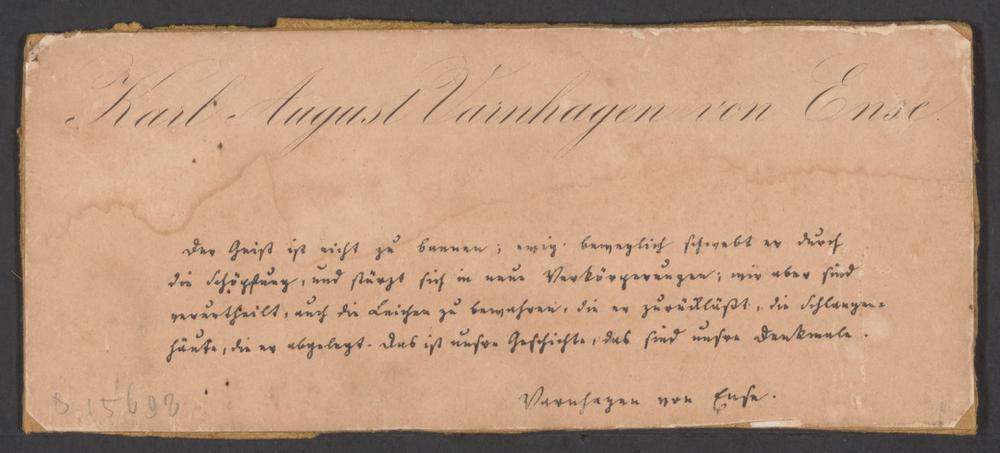 Karl August Varnhagen von Ense.
Der Geist ist nicht zu bannen; ewig beweglich schwebt er durch
die Schöpfung, und stürzt sich in neue Verkörperungen; wir aber sind
verurtheilt, auch die Leichen zu bewahren, die er zurückläßt, die Schlangen=
häute, die er abgelegt. Das ist unsre Geschichte, das sind unsre Denkmale.
Varnhagen von Ense.